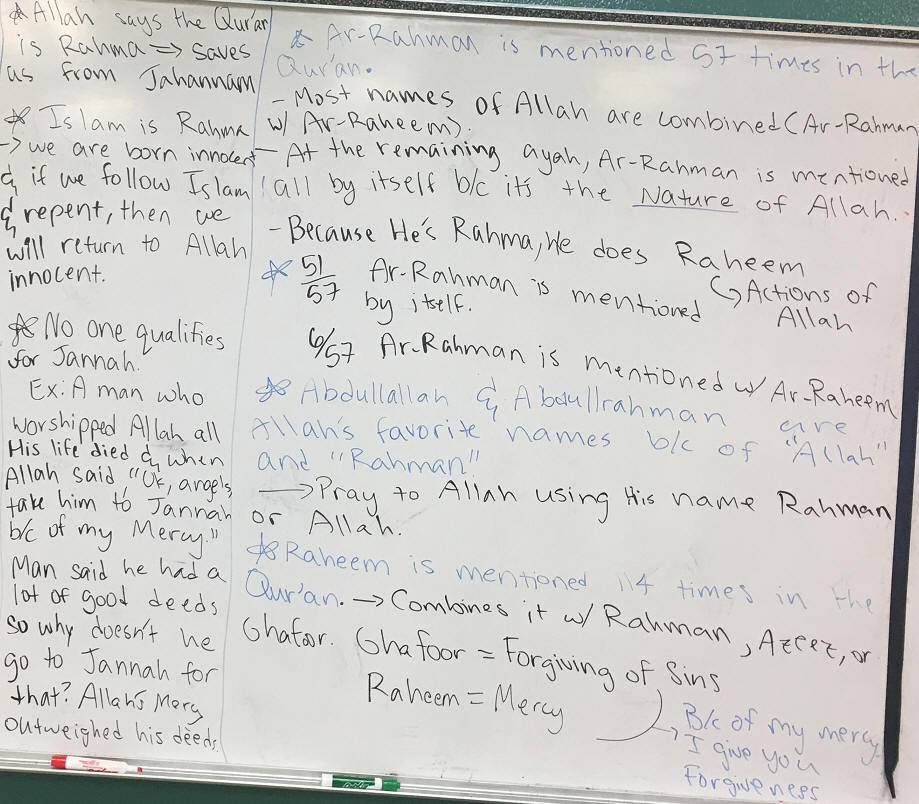 ☆ Allah says the Qur'an
is Rahma => saves
as from Jahannam
☆ Islam is Rahma
-> we are born innocent
& if we follow Islam
& repent, then we
will return to Allah
innocent.
☆ No one qualifies
for Jannah.
Ex: A man who
worshipped Allah all
His life died & when
Allah said "Ok, angels,
take him to Jannah
b/c of my Mercy."
Man said he had a
lot of good deeds
so why doesn't he
go to Jannah for
that? Allah's Mercy
outweighed his deeds.
☆ Ar-Rahman is mentioned 57 times in the
Qur'an.
- Most names of Allah are combined (Ar-Rahman
w/ Ar-Raheem).
- At the remaining ayah, Ar-Rahman is mentioned
all by itself b/c it's the Nature of Allah.
- Because He's Rahma, He does Raheem
↳ Actions of
Allah
☆ 51/57 Ar-Rahman is mentioned
by itself.
6/57 Ar-Rahman is mentioned w/ Ar-Raheem
☆ Abdullallah & Abdullrahman are
Allah's favorite names b/c of "Allah"
and "Rahman"
-> Pray to Allah using His name Rahman
or Allah.
☆ Raheem is mentioned 114 times in the
Qur'an. -> Combines it w/ Rahman, Azeez, or
Ghafoor. Ghafoor = Forgiving of Sins
Raheem = Mercy
-> B/c of my mercy
I give you
Forgiveness